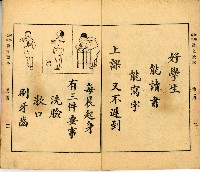 好學生
能讀書
能寫字
上課
又不遲到
每晨起身
有三件要事
洗臉
漱口
刷牙齒